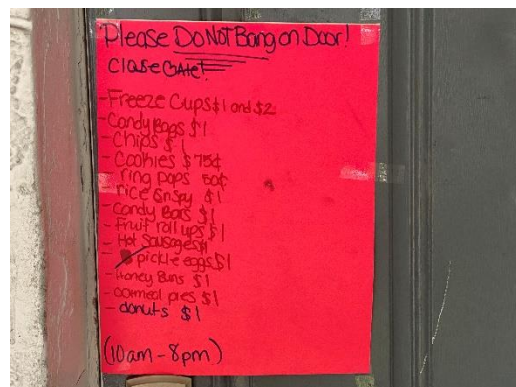 Please Do Not Bang on Door!
Close GAte!
-Freeze Cups $1 and $2
-Candy Bags $1
-Chips $1
-Cookies $75¢
-ring pops 50¢
-rice Crispy $1
-Candy Bars $1
-Fruit roll ups $1
-Hot Sausages $1
-pickle eggs $1
-Honey Buns $1
-oatmeal pies $1
-donuts $1
(10am-8pm)